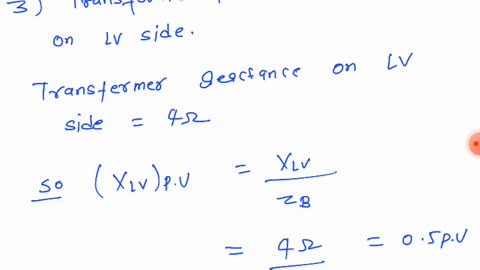 3) Transformer
on LV side.
Transfermer geactance on LV
side = 4Ω
so (X_LV)P.U = X_LV / Z_B
= 4Ω = 0.5 P.U